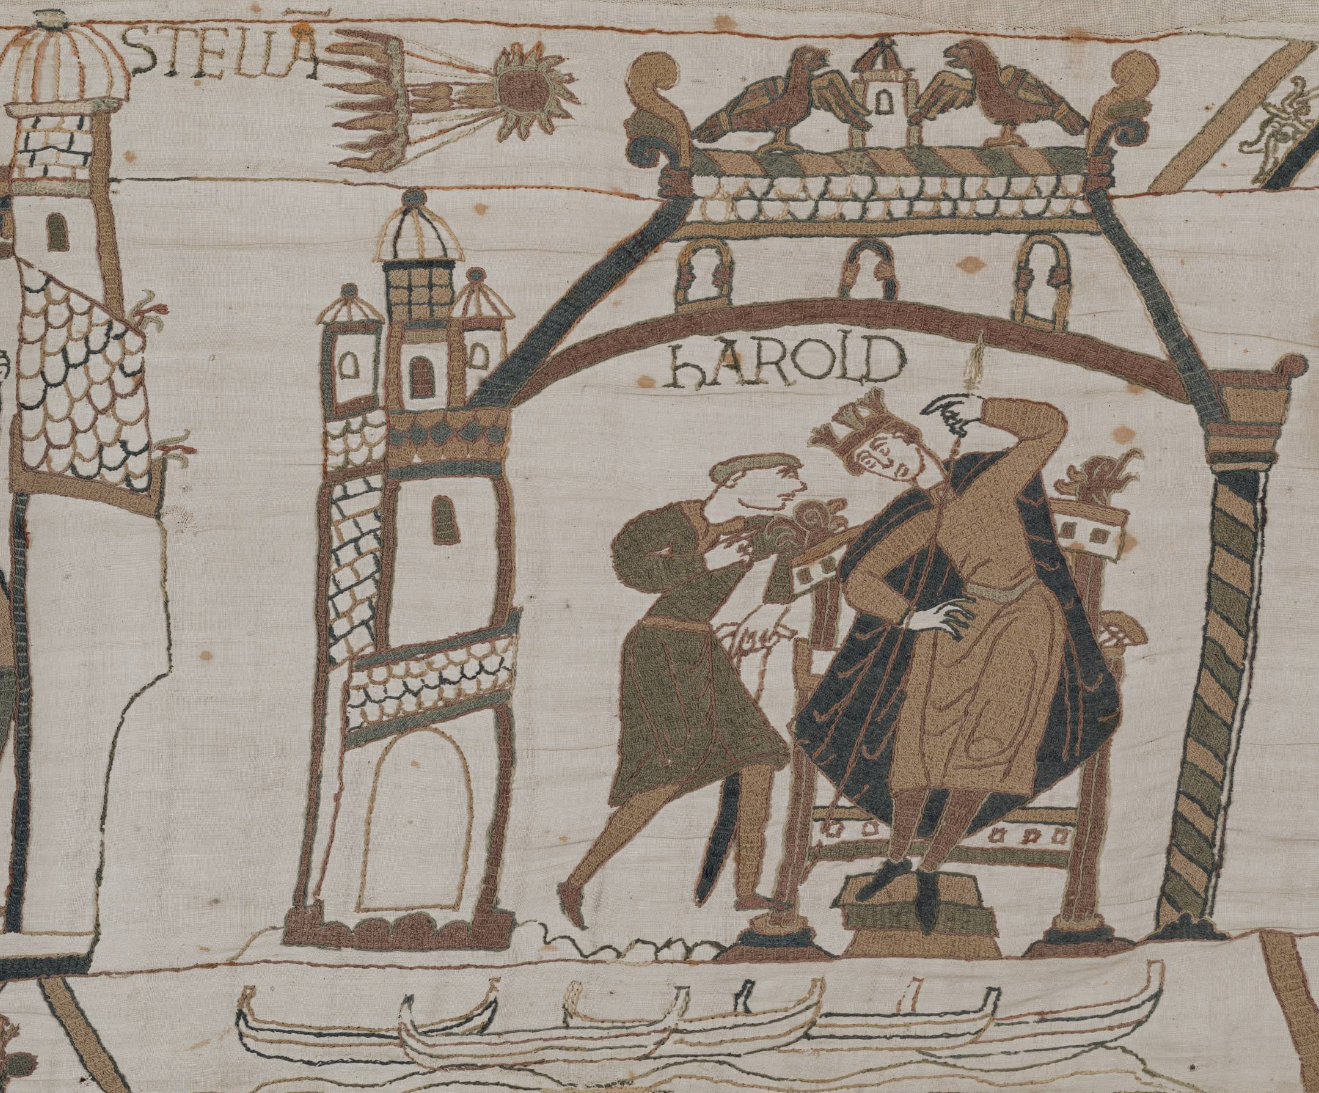 STELLÃ
hAROLD